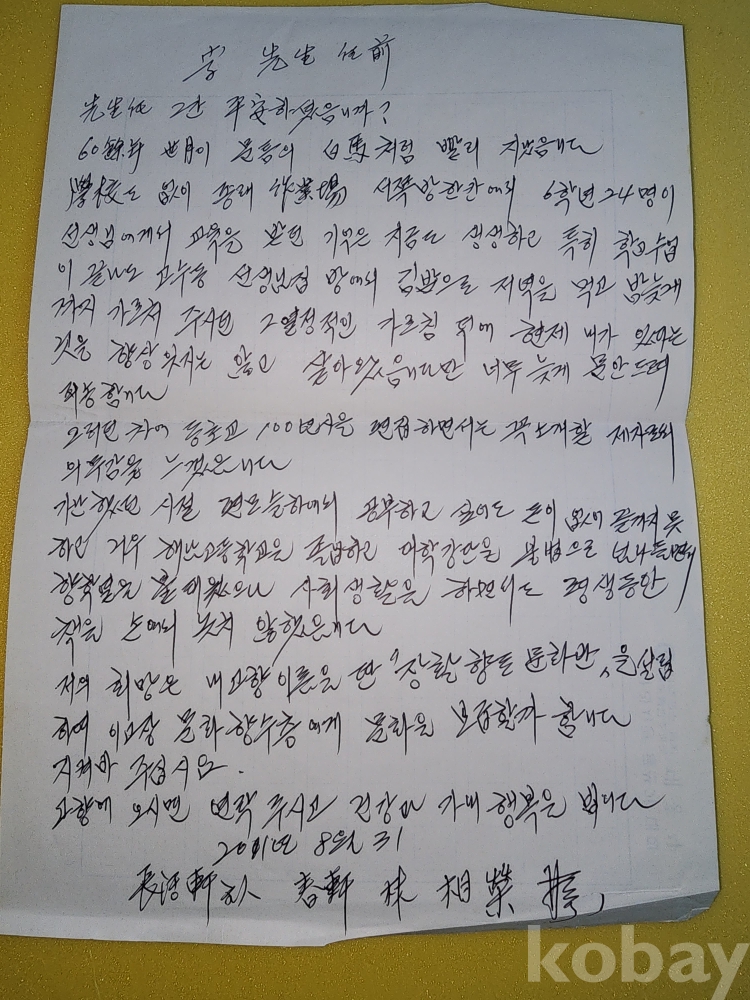 李 先生任前
先生任 그간 平安하셨읍니까?
60餘年 歲月이 문틈의 白馬처럼 빨리 지났읍니다
學校도 없이 동래 作業場 서쪽방한칸에서 6학년 24명이
선생님에게서 교육을 받던 기억은 지금도 생생하고 특히 학교수업
이 끝나도 교수동 선생님집 방에서 김밥으로 저녁을 먹고 밤늦게
까지 가르쳐 주시던 그열정적인 가르침 덕에 현제 내가 있다는
것을 항상 잊지는 않고 살아왔읍니다만 너무 늦게 문안드려
죄송합니다
그러던 차에 동초교 100년사을 편집하면서는 꼭소개할 제자로서
의무감을 느꼈읍니다
가난했던 시절 편모슬하에서 공부하고 싶어도 돈이 없어 끝까지 못
하고 겨우 해남고등학교을 졸업하고 대학강단을 불법으로 넘나들면서
향학열은 불태웠으나 사회생활을 하면서도 평생동안
책을 손에서 놓지 않했읍니다
저의 희망은 내고향이름을 딴 "장활 향토 문화관"을 설립
하여 이고장 문화향수층에게 문화을 보급할까 합니다
지켜봐 주십시요.
고향에 오시면 연락 주시고 건강과 가내 행복을 빕니다
2001년 8월 31
春軒 林 相榮 拜
kobay